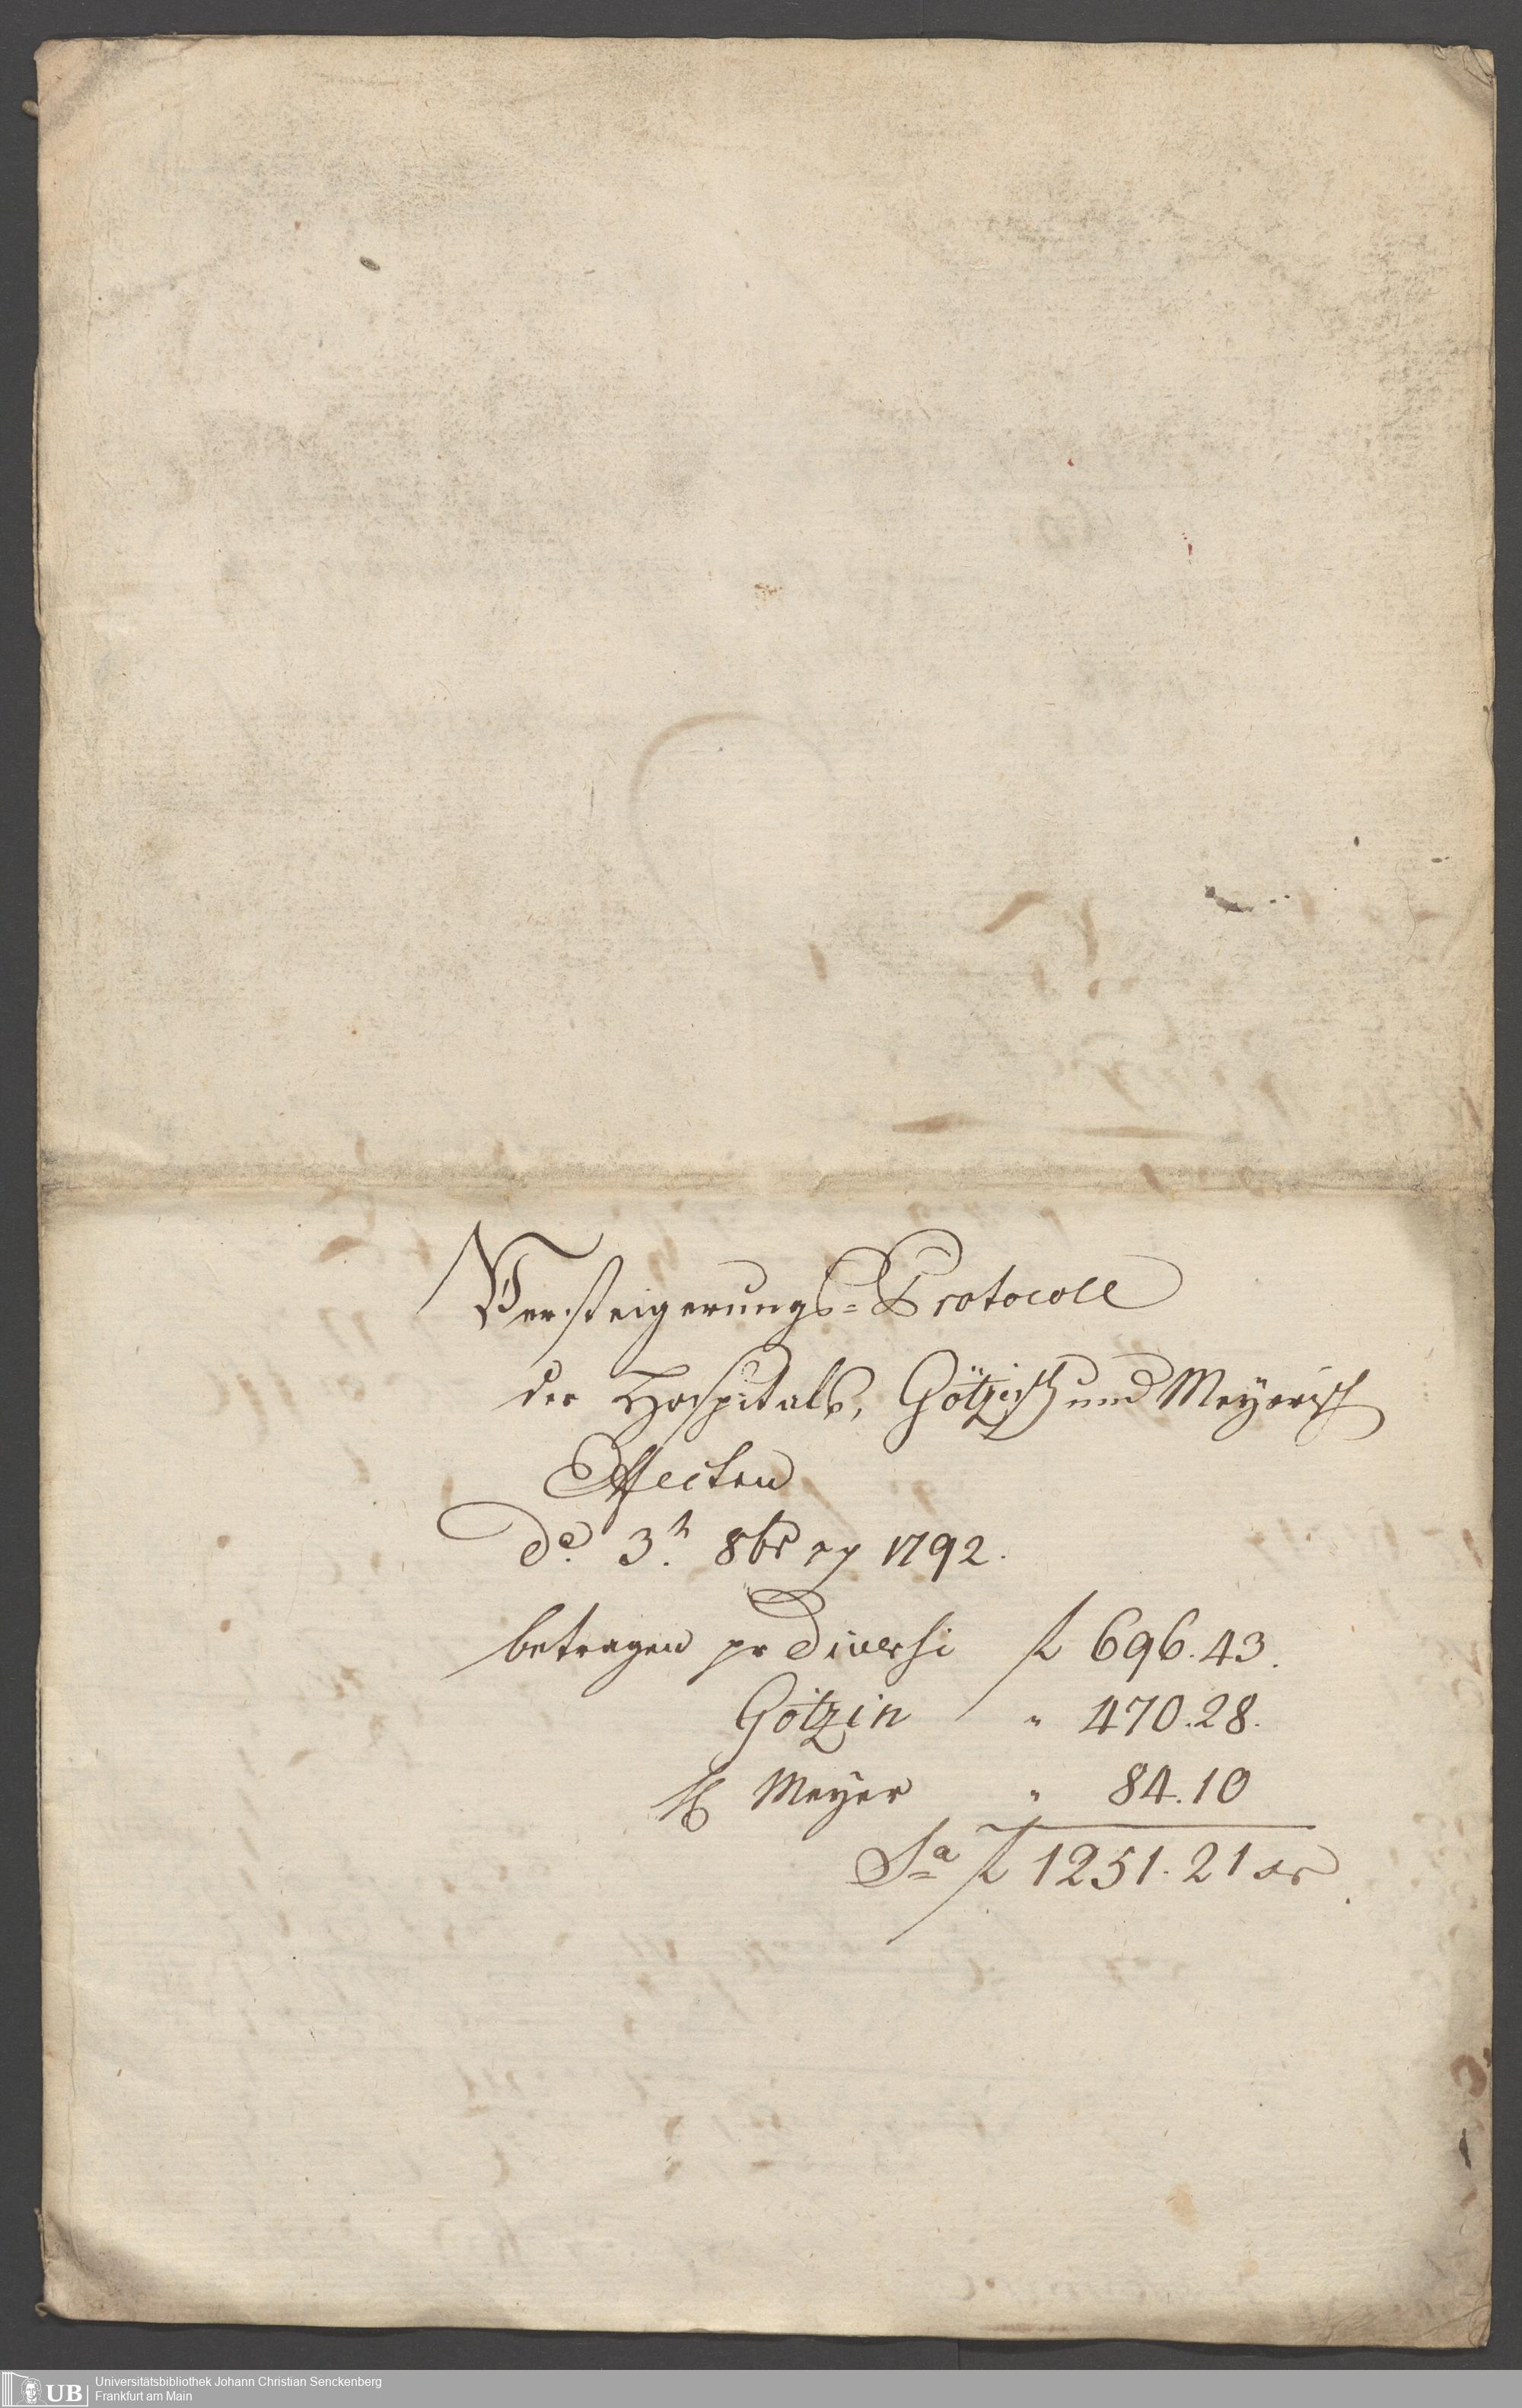 Versteigerungs=Protocoll
der Hospitals, Götzisch und Meyerisch
Effecten
de 3t 8br 1792.
betragen pr Diversi f 696.43.
Götzin " 470.28.
H Meyer " 84.10
Sa f 1251.21 xr
UB
Universitätsbibliothek Johann Christian Senckenberg
Frankfurt am Main